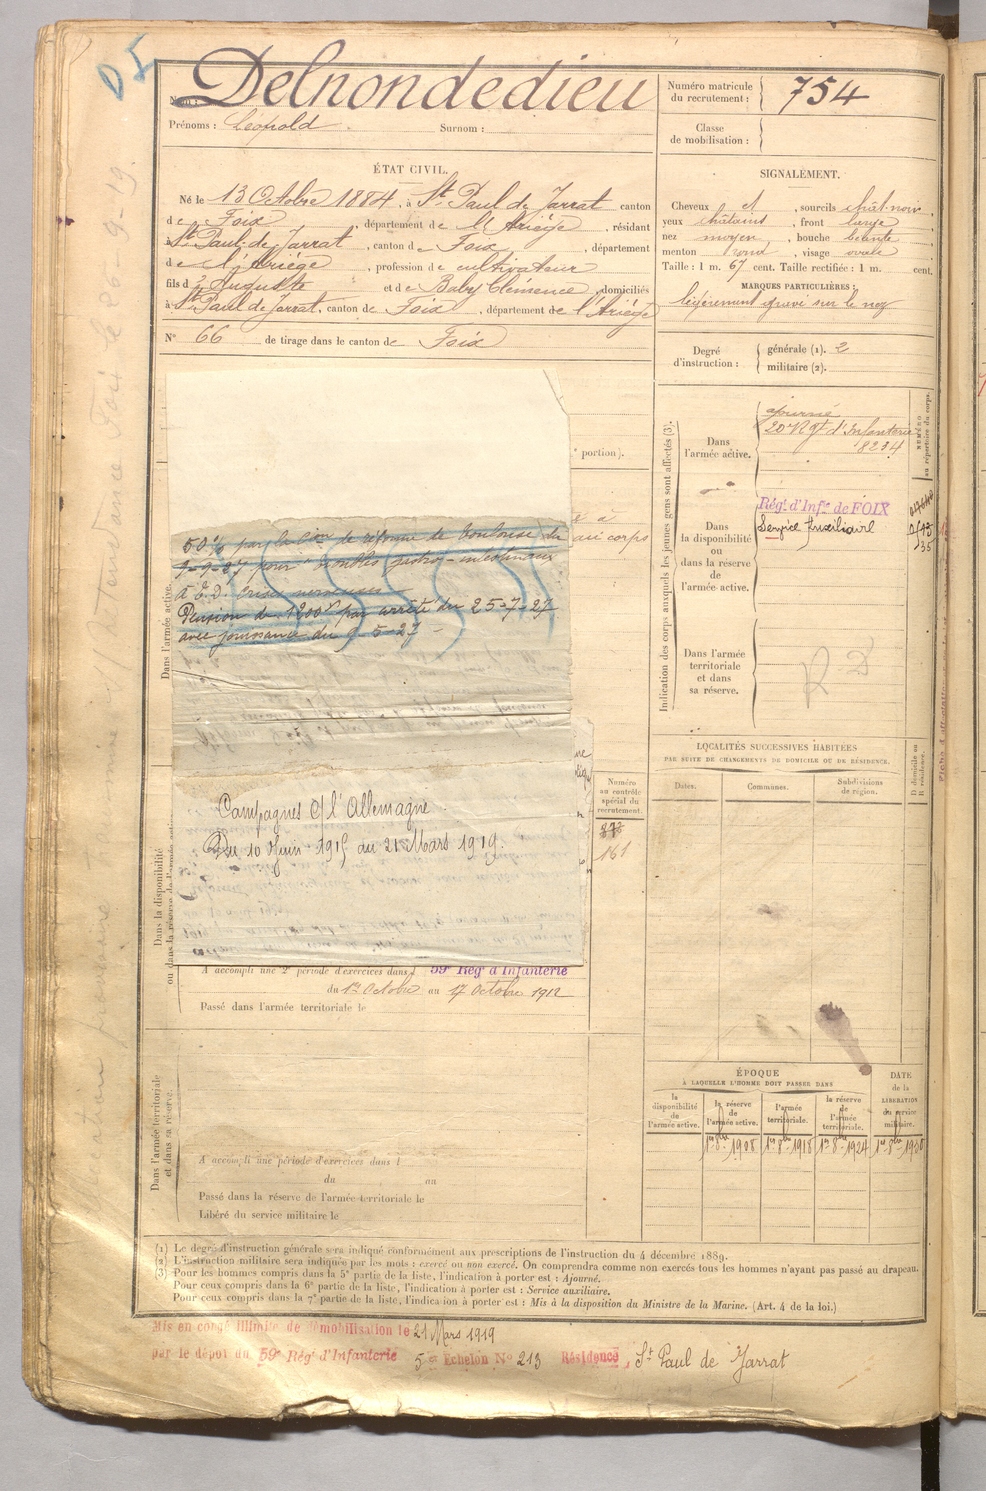 DS
Nom : Delnondedieu
Prénoms : Léopold Surnom :
Numéro matricule du recrutement : 754
Classe de mobilisation :
ÉTAT CIVIL.
Né le 13 Octobre 1884, à St Paul de Jarrat canton
de Foix, département de l'Ariège, résidant
à St Paul de Jarrat, canton de Foix, département
de l'Ariège, profession de cultivateur
fils d'Auguste et de Baby Clémence, domiciliés
à St Paul de Jarrat, canton de Foix, département de l'Ariège
N° 66 de tirage dans le canton de Foix
SIGNALEMENT.
Cheveux et, sourcils chât-noir,
yeux châtains, front large,
nez moyen, bouche
menton rond, visage ovale
Taille : 1 m. 67 cent. Taille rectifiée : 1 m. cent.
MARQUES PARTICULIÈRES :
légèrement gravé sur le nez
Degré d'instruction : générale (1). 2
militaire (2).
portion).
au corps
50% par la Cion de réforme de Toulouse du
9-9-27 pour troubles gastro-intestinaux
Pension de 1200f par arrêté du 25-7-27
avec jouissance du 9-5-27 -
Campagnes c/ l'Allemagne
Du 10 Juin 1915 au 21 Mars 1919.
Dans l'armée active.
Dans la disponibilité
ou dans la réserve de l'armée active.
A accompli une 2e période d'exercices dans 59e Régt d'Infanterie
du 1er Octobre au 17 Octobre 1912
Passé dans l'armée territoriale le
Numéro au contrôle spécial du recrutement.
161
Dans l'armée territoriale et dans sa réserve.
A accompli une période d'exercices dans l
du au
Passé dans la réserve de l'armée territoriale le
Libéré du service militaire le
Indication des corps auxquels les jeunes gens sont affectés (3).
NUMÉRO au répertoire du corps.
Dans l'armée active.
ajourné
20e Rgt d'Infanterie
8234
Dans la disponibilité ou dans la réserve de l'armée active.
Régt d'Infie de FOIX
Service Auxiliaire
Dans l'armée territoriale et dans sa réserve.
LOCALITÉS SUCCESSIVES HABITÉES
PAR SUITE DE CHANGEMENTS DE DOMICILE OU DE RÉSIDENCE.
Dates. Communes. Subdivisions de région. D domicile ou R résidence.
ÉPOQUE
À LAQUELLE L'HOMME DOIT PASSER DANS
DATE de la LIBÉRATION du service militaire.
la disponibilité de l'armée active.
la réserve de l'armée active.
l'armée territoriale.
la réserve de l'armée territoriale.
1er 8bre 1908 1er 8bre 1918 1er 8bre 1924 1er 8bre 1930
(1) Le degré d'instruction générale sera indiqué conformément aux prescriptions de l'instruction du 4 décembre 1889.
(2) L'instruction militaire sera indiquée par les mots : exercé ou non exercé. On comprendra comme non exercés tous les hommes n'ayant pas passé au drapeau.
(3) Pour les hommes compris dans la 5e partie de la liste, l'indication à porter est : Ajourné.
Pour ceux compris dans la 6e partie de la liste, l'indication à porter est : Service auxiliaire.
Pour ceux compris dans la 7e partie de la liste, l'indication à porter est : Mis à la disposition du Ministre de la Marine. (Art. 4 de la loi.)
Mis en congé illimité de démobilisation le 21 Mars 1919
par le dépôt du 59e Régt d'Infanterie 5e Echelon N° 213 Résidence St Paul de Jarrat